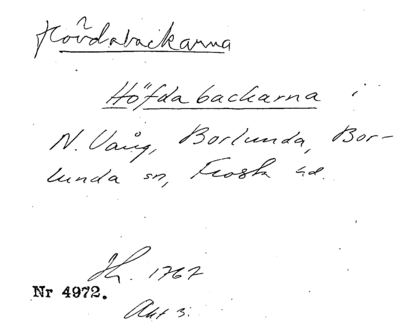 Hövdabackarna
Höfdabackarna i
N. Vång, Borlunda, Bor-
lunda sn, Frosta hd.
Jh. 1767
Nr 4972.
Akt 3.